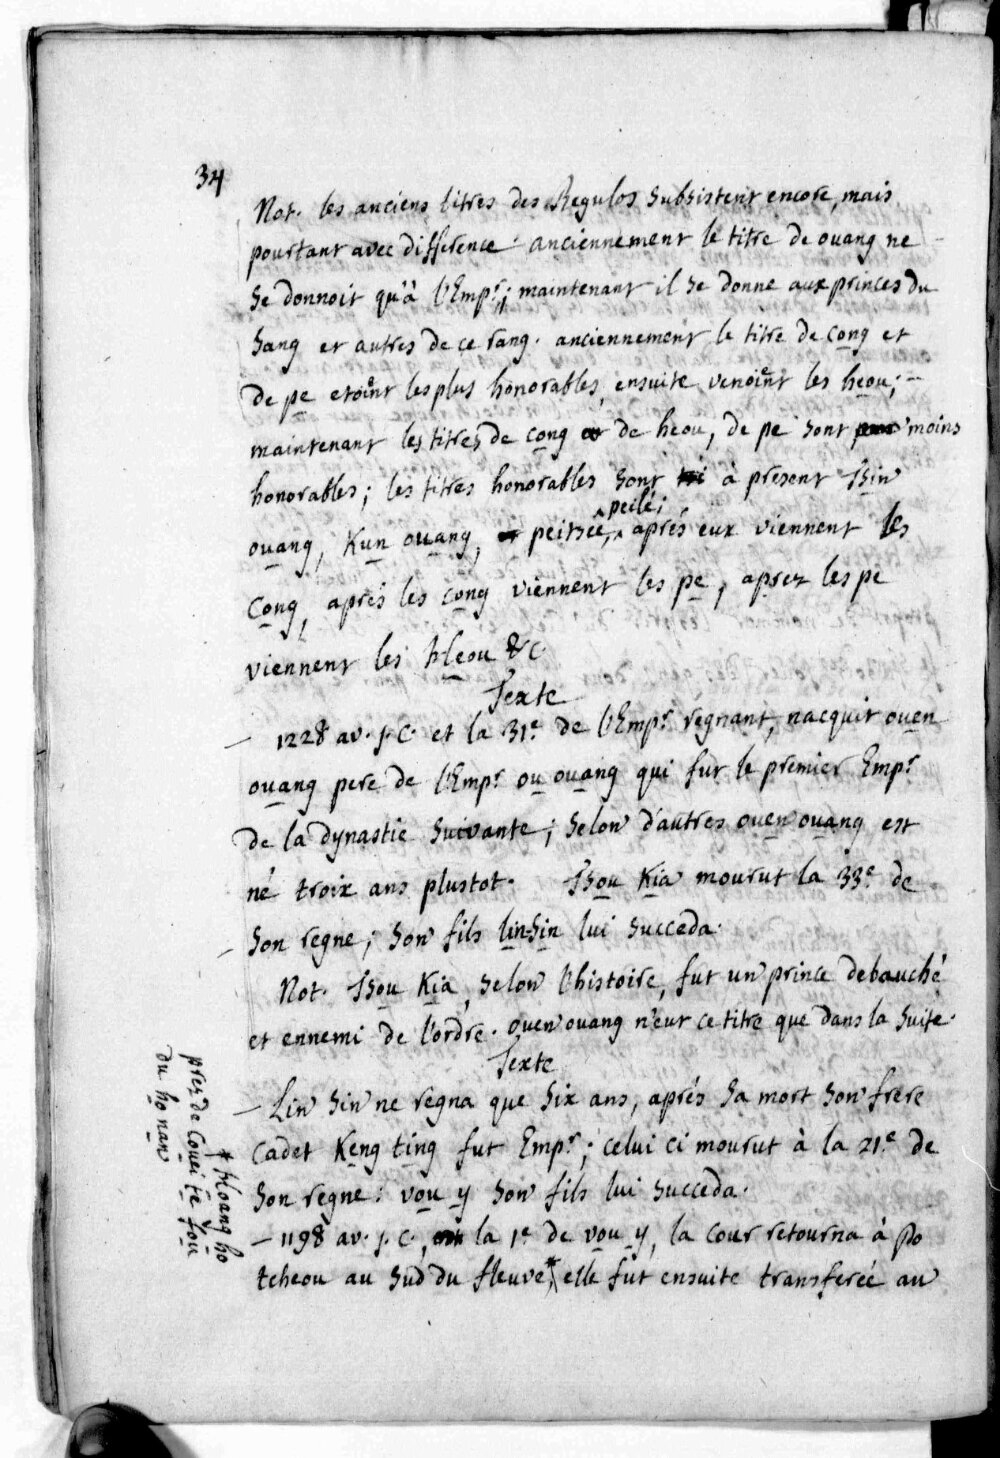 34
Not. les anciens titres des Regulos subsistent encore, mais
pourtant avec difference. anciennement le titre de ouang ne
se donnoit qu'à l'Empr.; maintenant il se donne aux princes du
sang et autres de ce rang. anciennement le titre de cong et
de pe etoient les plus honorables, ensuite venoient les heou;
maintenant les titres de cong de heou, de pe sont moins
honorables; les titres honorables sont à present Tsin
ouang, Kun ouang, peitsëe, peilé; aprés eux viennent les
cong, aprés les cong viennent les pe, aprez les pe
viennent les heou &c.
Texte
— 1228 av. j. C. et la 31e. de l'Empr. regnant, nacquit ouen
ouang pere de l'Empr. ou ouang qui fut le premier Empr.
de la dynastie suivante; selon d'autres ouen ouang est
né troix ans plustot. Tsou Kia mourut la 33e. de
— son regne; son fils lin-sin lui succeda.
Not. Tsou Kia, selon l'histoire, fut un prince debauché
et ennemi de l'ordre. ouen ouang n'eut ce titre que dans la suite.
Texte
— Lin sin ne regna que six ans, aprés sa mort son frere
cadet Keng ting fut Empr.; celui ci mourut à la 21e. de
son regne: vou y son fils lui succeda.
— 1198 av. j. C., la 1e. de vou y, la cour retourna à Po
tcheou au sud du fleuve* elle fût ensuite transferée au
* hoang ho
prez de Couei te fou
du ho nan